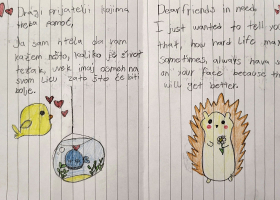 Dragi prijatelji kojima
treba pomoć,
Ja sam htela da vam
kažem nešto, koliko je život
težak, uvek imaj osmeh na
svom licu zato što će biti
bolje.
Dear friends in need,
I just wanted to tell you
that, how hard life may
Sometimes, always have s
on your face because th
will get better.